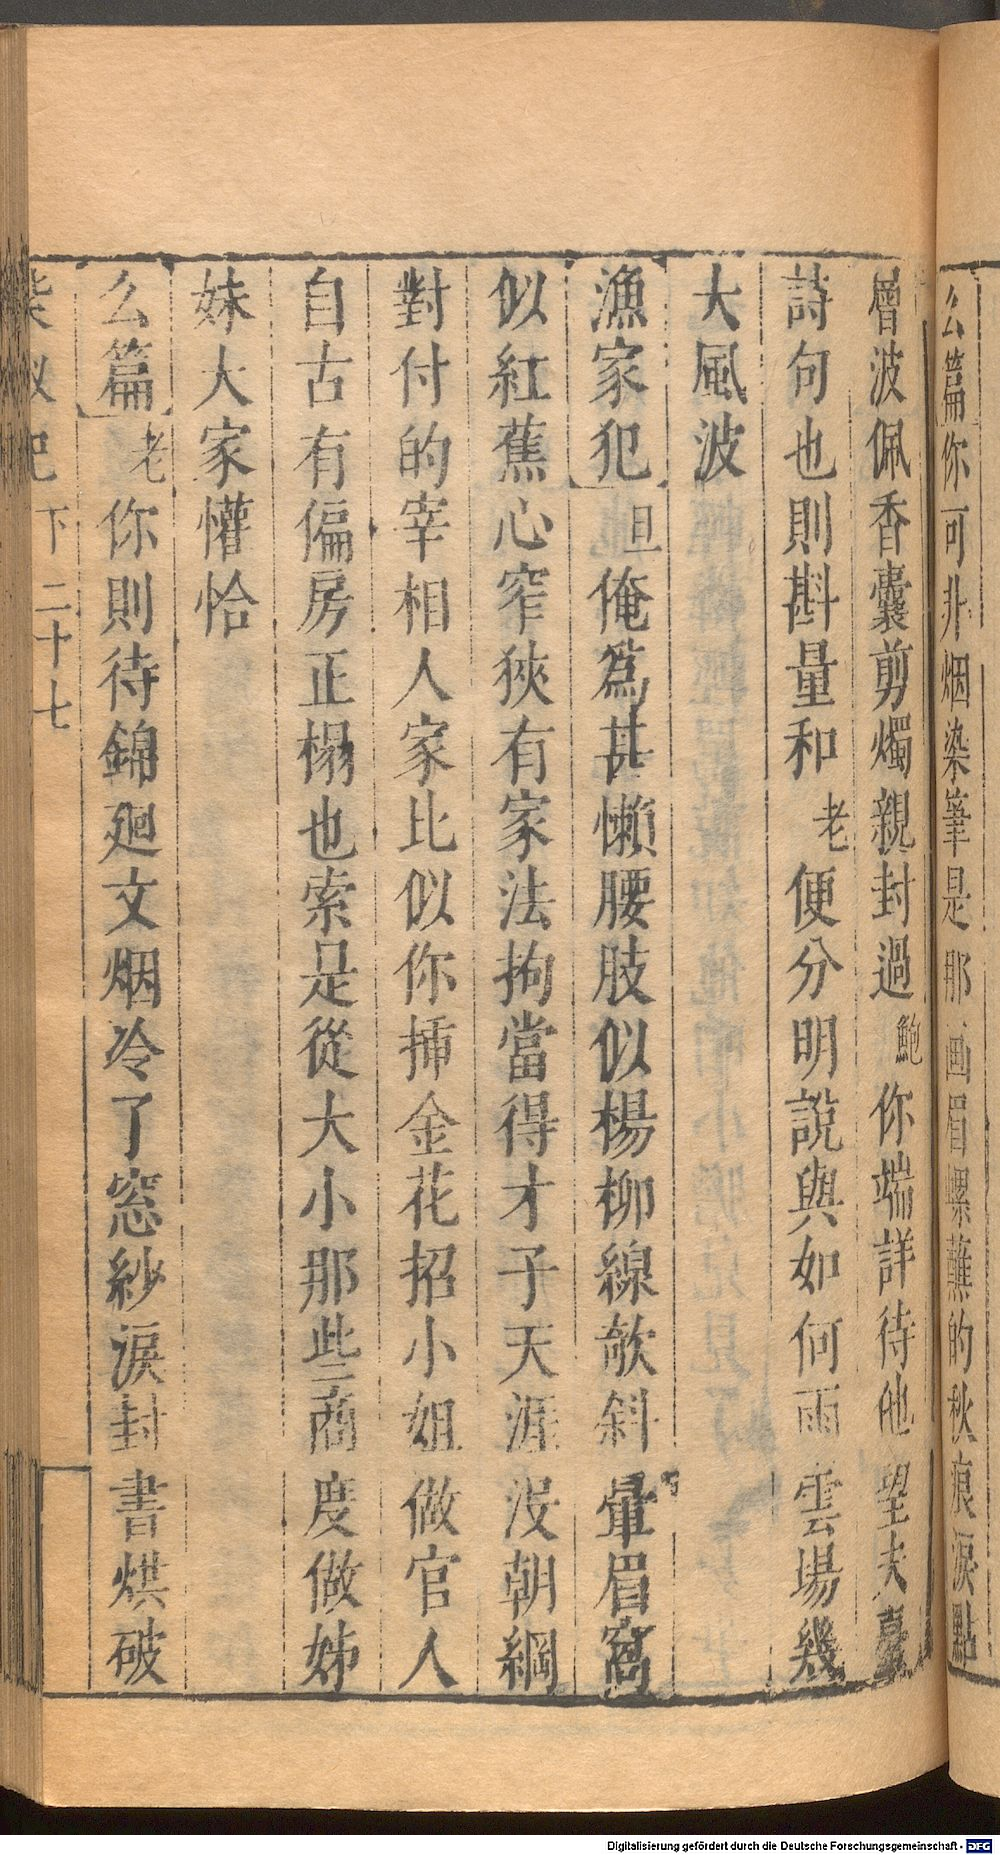 么篇你可非烟染筆是那画眉螺蘸的秋痕淚點
層波佩香囊剪燭親封過鮑你端詳待他望夫臺
詩句也則斟量和老便分明說與如何雨雲場幾
大風波
漁家犯旦俺為甚懶腰肢似楊柳線欹斜暈眉窩
似紅蕉心窄狹有家法拘當得才子天涯沒朝綱
對付的宰相人家比似你插金花招小姐做官人
自古有偏房正榻也索是從大小那些商度做姊
妹大家懽恰
么篇老你則待錦廻文烟冷了窓紗淚封書烘破
紫釵記
下二十七
Digitalisierung gefördert durch die Deutsche Forschungsgemeinschaft - DFG